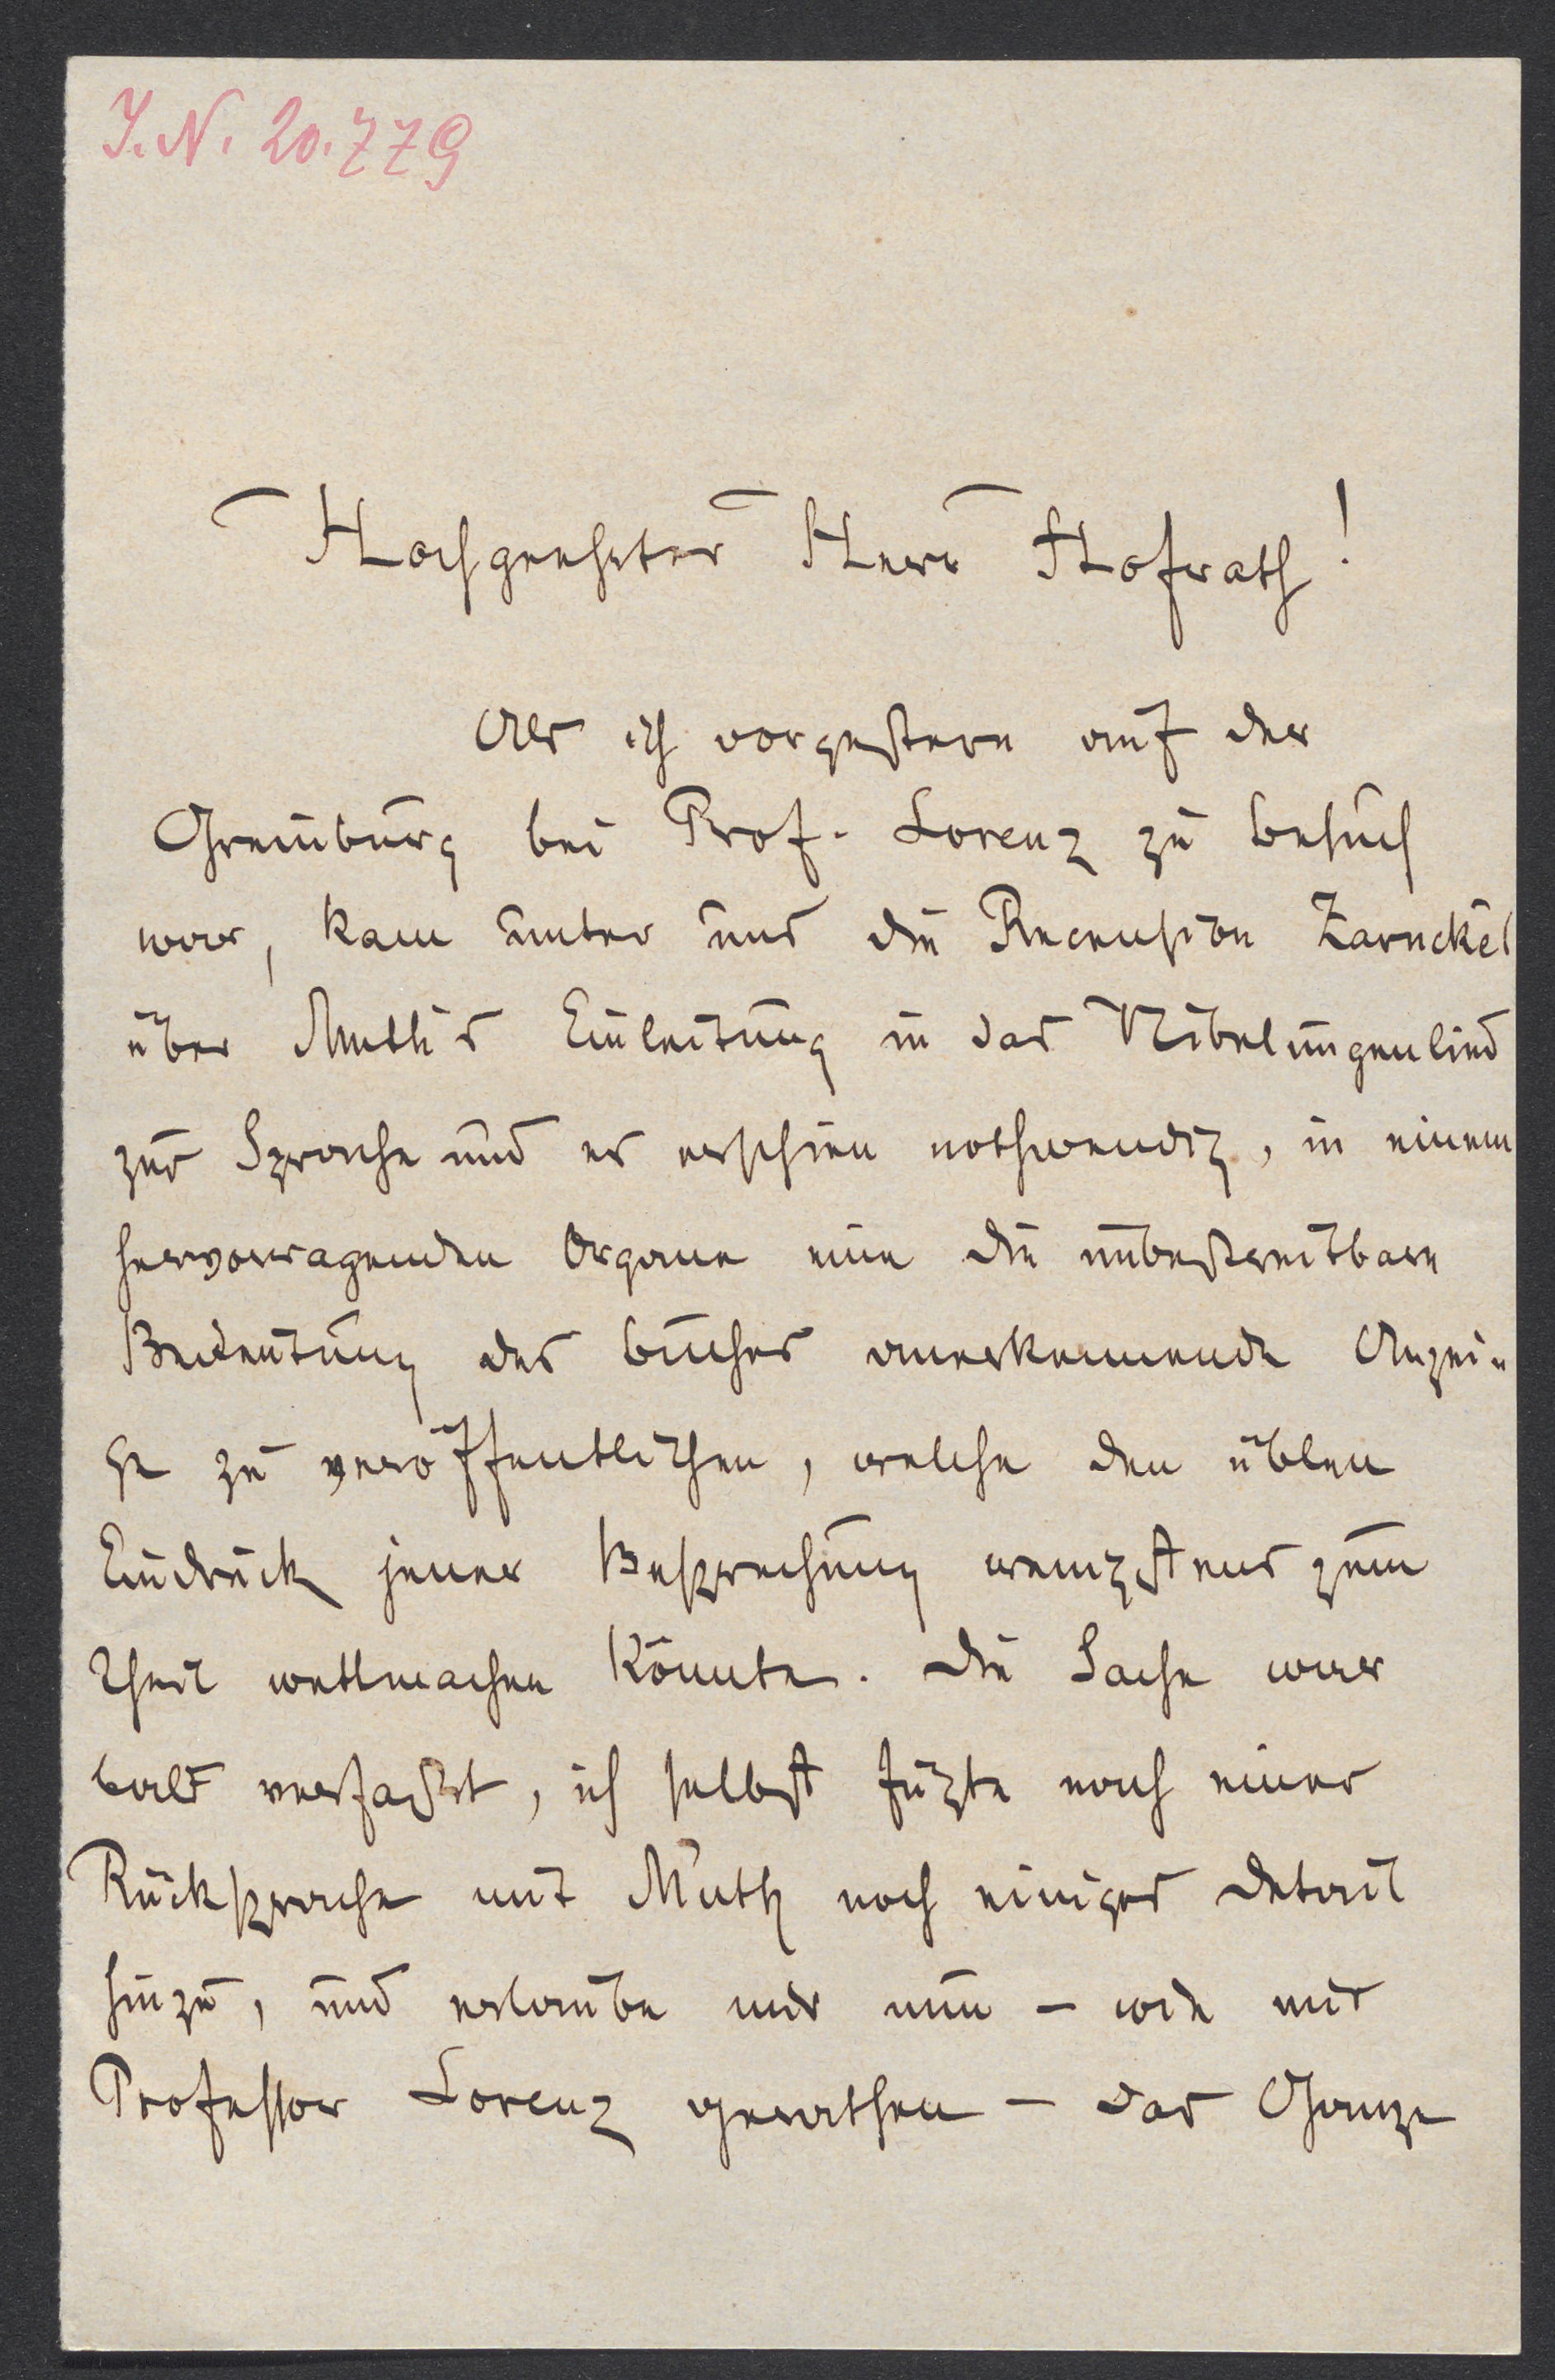 J. N. 20.779
Hochgeehrter Herr Hofrath!
Als ich vorgestern auf der
Greinburg bei Prof. Lorenz zu besuch
war, kam unter uns die Recension Zarnckes
über Muth's Einleitung in das Nibelungenlied
zur Sprache und es erschien nothwendig, in einem
hervorragenden Organe eine die unbestreitbare
Bedeutung des buches anerkennende Anzei-
ge zu veröffentlichen, welche den üblen
Eindruck jener Besprechung wenigstens zum
Theil wettmachen könnte. Die Sache war
bald verfaßt, ich selbst fügte nach einer
Rücksprache mit Muth noch einiges Detail
hinzu, und erlaube mir nun – wie mir
Professor Lorenz gerathen – das Ganze